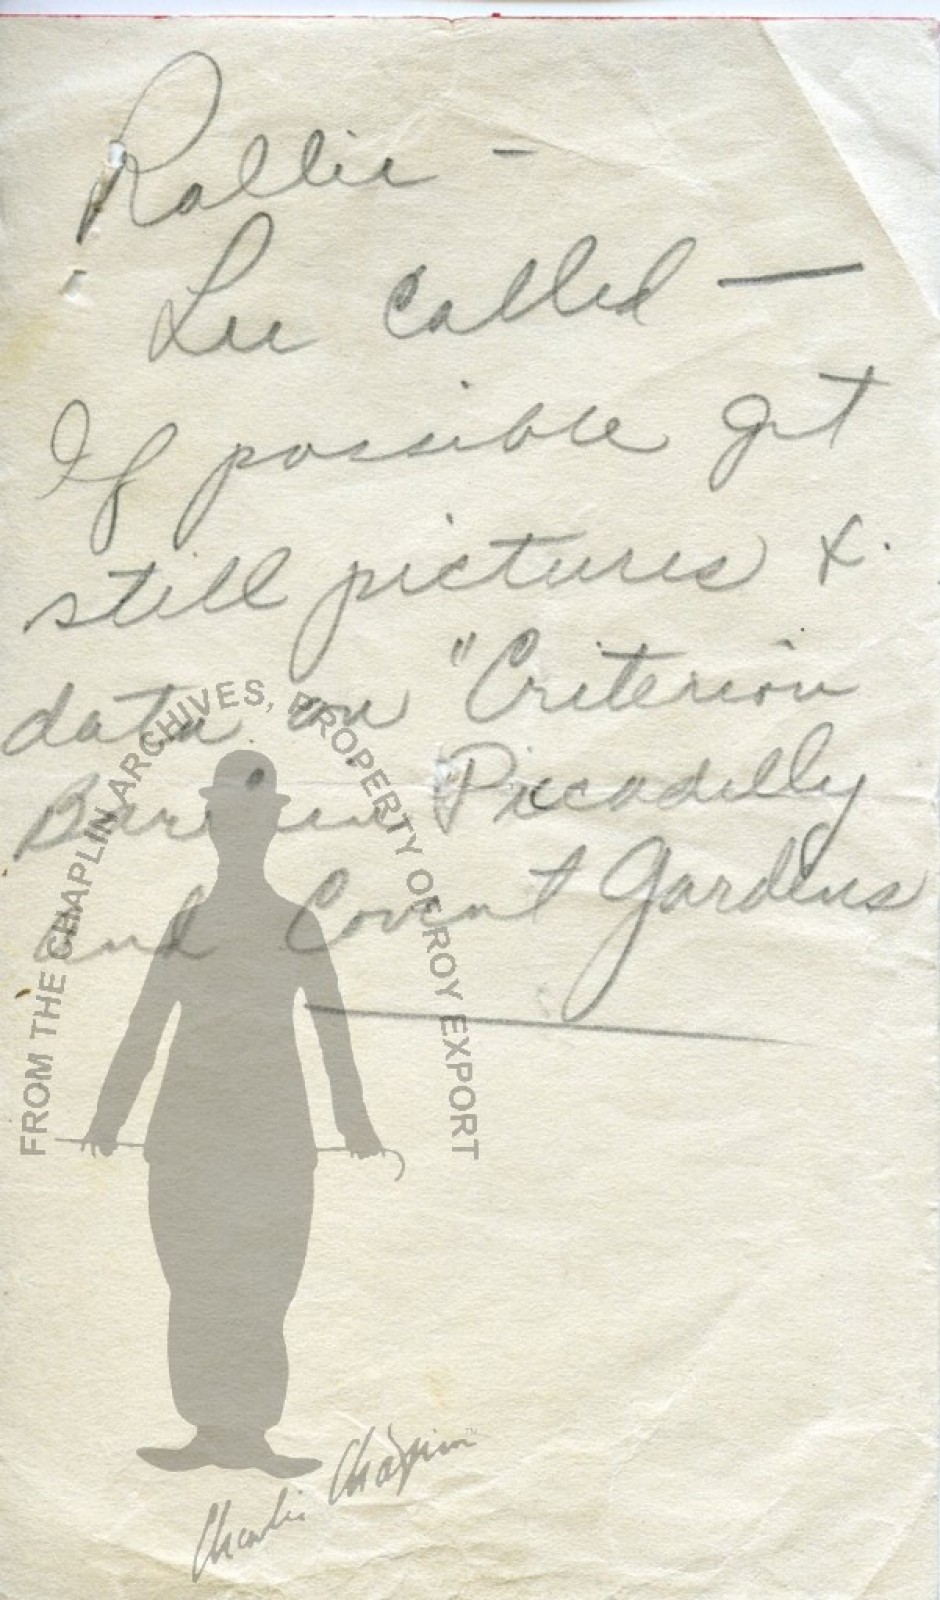 Rollie -
Lee called —
If possible get
still pictures &
data on "Criterion
Bar in Piccadilly
and Covent Gardens
FROM THE CHAPLIN ARCHIVES, PROPERTY OF ROY EXPORT
Charlie Chaplin